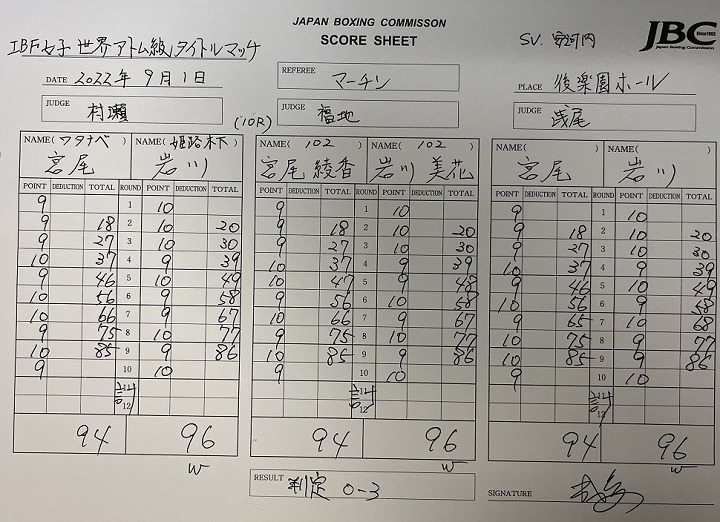 JAPAN BOXING COMMISSON
SCORE SHEET
SV. 安河内
JBC Since1952
Japan Boxing Commission
IBF女子 世界アトム級タイトルマッチ
DATE 2022年 9月1日
REFEREE マーチン
PLACE 後楽園ホール
JUDGE 村瀬
(10R)
JUDGE 福地
JUDGE 浅尾
NAME( ワタナベ ) NAME( 姫路木下 ) NAME( 102 ) NAME( 102 ) NAME( ) NAME( )
宮尾 岩川 宮尾 綾香 岩川 美花 宮尾 岩川
POINT DEDUCTION TOTAL ROUND POINT DEDUCTION TOTAL POINT DEDUCTION TOTAL ROUND POINT DEDUCTION TOTAL POINT DEDUCTION TOTAL ROUND POINT DEDUCTION TOTAL
9 1 10 9 1 10 9 1 10
9 18 2 10 20 9 18 2 10 20 9 18 2 10 20
9 27 3 10 30 9 27 3 10 30 9 27 3 10 30
10 37 4 9 39 10 37 4 9 39 10 37 4 9 39
9 46 5 10 49 10 47 5 9 48 9 46 5 10 49
10 56 6 9 58 9 56 6 10 58 10 56 6 9 58
10 66 7 9 67 10 66 7 9 67 9 65 7 10 68
9 75 8 10 77 9 75 8 10 77 10 75 8 9 77
10 85 9 9 86 10 85 9 9 86 10 85 9 9 86
9 10 10 9 10 10 9 10 10
12 12 12
94 96 94 96 94 96
W W W
RESULT 判定 0-3
SIGNATURE